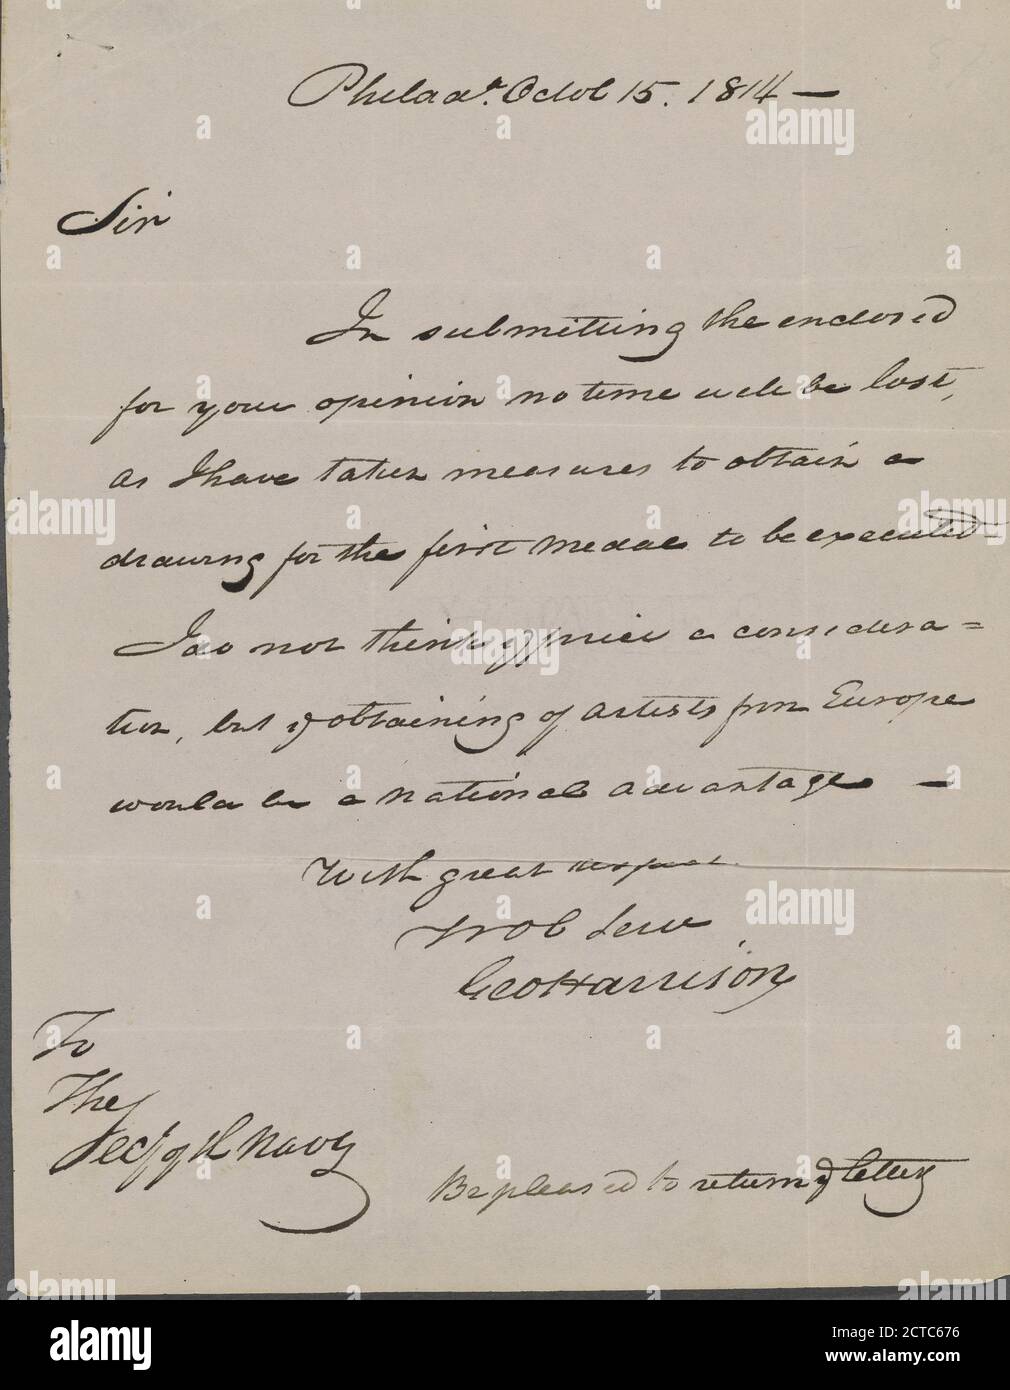 Philada. Octob 15. 1814 —
Sir
In submitting the enclosed
for your opinion no time will be lost,
as I have taken measures to obtain a
drawing for the first medal to be executed—
I do not think ye price a considera=
tion, but ye obtaining of artists from Europe
would be a national advantage —
With great respect
Yr Ob Serv
Geo Harrison
To
The
Secy of th Navy
Be pleased to return ye letters
alamy
Image ID: 2CTC676
www.alamy.com